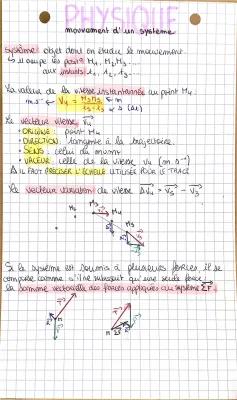 PHYSIQUE
mouvement d'un système
Système : objet dont on étudie le mouvement.
↳ il occupe les positᵒ M₁, M₂, M₃ ...
aux instants t₁, t₂, t₃ ...
La valeur de la vitesse instantanée au point M₄
m.s⁻¹ ← V₄ = M₃M₅ ← m
t₅ - t₃ ← s (Δt)
Le vecteur vitesse V₄
• ORIGINE : point M₄
• DIRECTION : tangente à la trajectoire.
• SENS : celui du mvmt.
• VALEUR : celle de la vitesse V₄ (m.s⁻¹)
⚠ IL FAUT PRÉCISER L'ÉCHELLE UTILISÉE POUR LE TRACÉ
Le vecteur variation de vitesse ΔV₄ = V₅ - V₃
M₂ M₃ M₄
M₅
Si le système est soumis à plusieurs forces il se
comporte comme s'il ne subissait qu'une seule force :
la somme vectorielle des forces appliquées au système ΣF